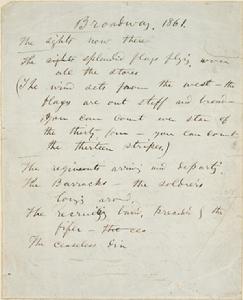 Broadway, 1861.
The sights now there
The sights splendid flags flying over
all the stores
(The wind sets from the west – the
flags are out stiff and broad –
you can count every star of
the thirty four – you can count
the thirteen stripes.)
The regiments arriving and departing
The Barracks – the soldiers
lounging around,
The recruiting band, preceded by the
fifer –
The ceaseless din